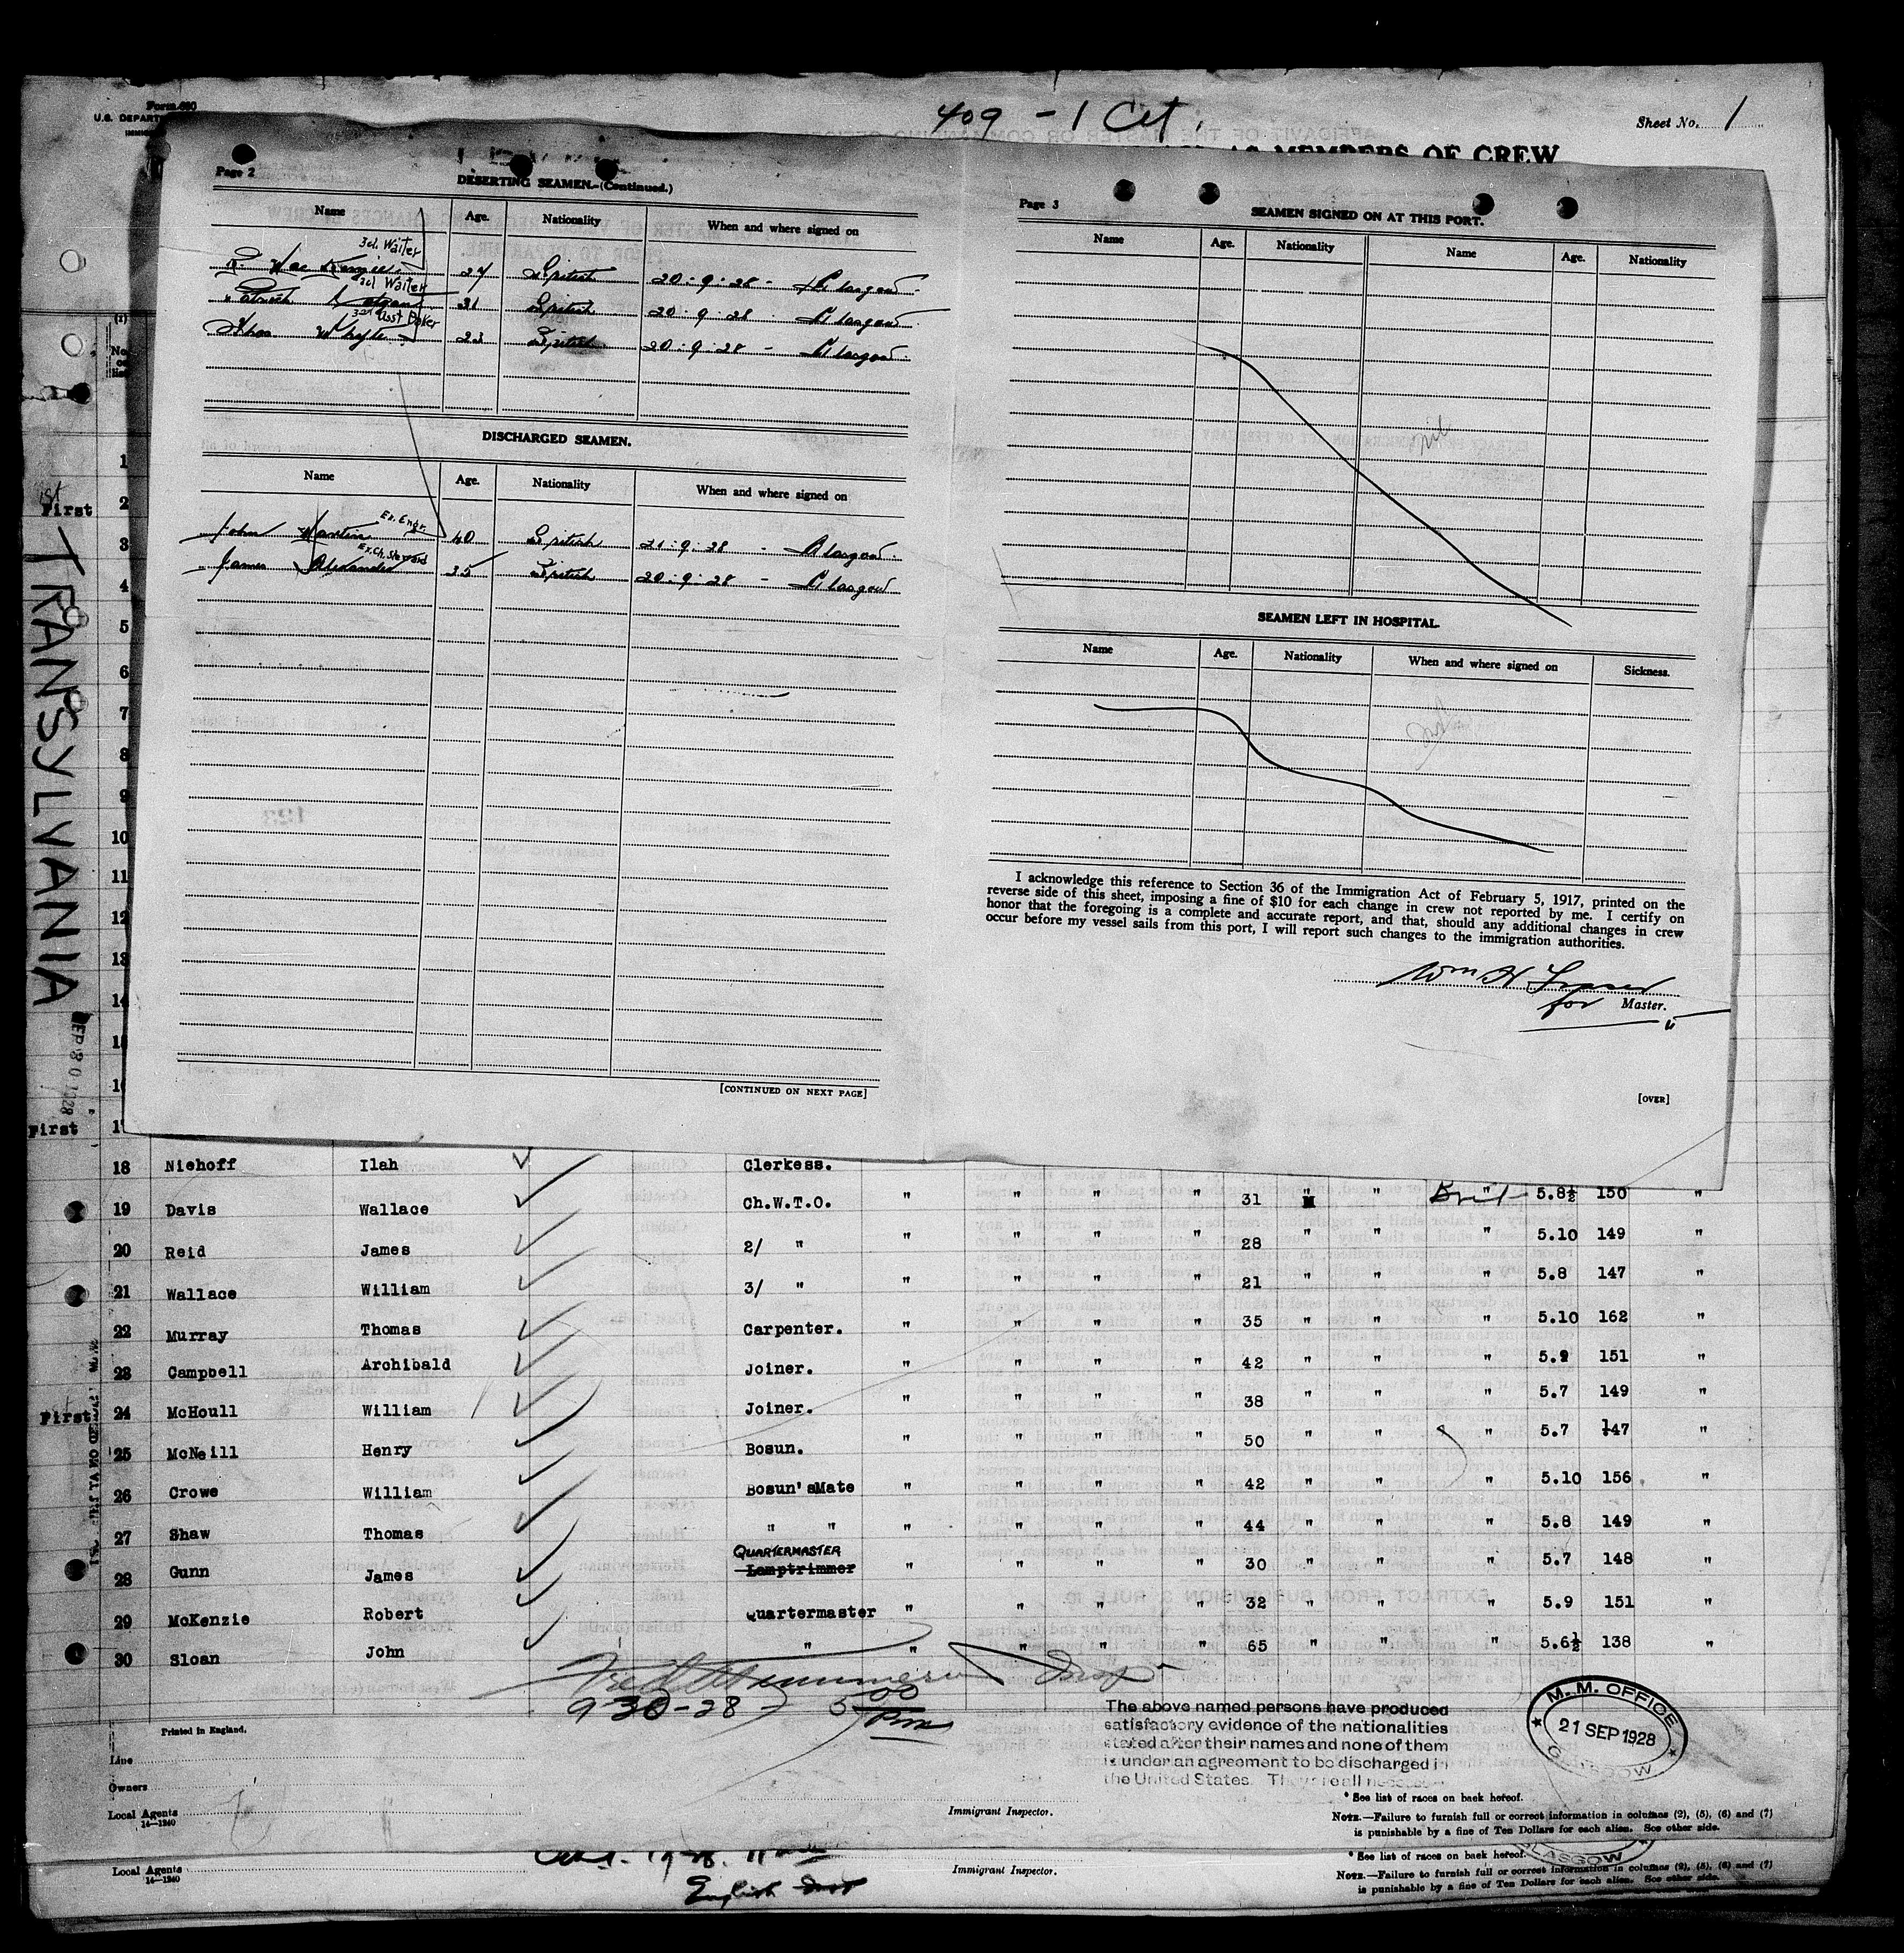 Form 680
U.S. DEPART
409 - 1 Cit.
Sheet No. 1
AS MEMBERS OF CREW
TRANSYLVANIA
SEP 30 1928
Page 2
DESERTING SEAMEN.-(Continued.)
Name Age. Nationality When and where signed on
3cl. Waiter
R. MacKenzie 27 British 20:9:28 - Glasgow.
3cl Waiter
Patrick 21 British 20:9:28 Glasgow
3rd Asst Baker
Thos Whyte 23 British 20:9:28 - Glasgow.
DISCHARGED SEAMEN.
Name Age. Nationality When and where signed on
Ex. Engr.
John Martin 40 British 21:9:28 - Glasgow.
Ex. Ch. Steward
James Alexander 35 British 20:9:28 - Glasgow
[CONTINUED ON NEXT PAGE]
Page 3
SEAMEN SIGNED ON AT THIS PORT.
Name Age. Nationality Name Age. Nationality
nil
SEAMEN LEFT IN HOSPITAL.
Name Age. Nationality When and where signed on Sickness.
I acknowledge this reference to Section 36 of the Immigration Act of February 5, 1917, printed on the
reverse side of this sheet, imposing a fine of $10 for each change in crew not reported by me. I certify on
honor that the foregoing is a complete and accurate report, and that, should any additional changes in crew
occur before my vessel sails from this port, I will report such changes to the immigration authorities.
Wm H Fraser
for Master.
[OVER]
No.
on
list
1
1st
First 2
3
4
5
6
7
8
9
10
11
12
13
14
15
16
First 17
18 Niehoff Ilah Clerkess.
19 Davis Wallace Ch.W.T.O. " " " " 31 " " Brit " 5.8½ 150 "
20 Reid James 2/ " " " " " 28 " " " 5.10 149 "
21 Wallace William 3/ " " " " " 21 " " " 5.8 147 "
22 Murray Thomas Carpenter. " " " " 35 " " " 5.10 162 "
23 Campbell Archibald Joiner. " " " " 42 " " " 5.9 151 "
First 24 McHoull William Joiner. " " " " 38 " " " 5.7 149 "
25 McNeill Henry Bosun. " " " " 50 " " " 5.7 147 "
26 Crowe William Bosun'sMate " " " " 42 " " " 5.10 156 "
27 Shaw Thomas " " " " " " 44 " " " 5.8 149 "
QUARTERMASTER
28 Gunn James Lamptrimmer " " " " 30 " " " 5.7 148 "
29 McKenzie Robert Quartermaster " " " " 32 " " " 5.9 151 "
30 Sloan John " " " " " 65 " " " 5.6½ 138 "
Insp
9-30-28 - 5 00 Pm
Printed in England.
Line
Owners
Local Agents
14-1240
Immigrant Inspector.
The above named persons have produced
satisfactory evidence of the nationalities
stated after their names and none of them
is under an agreement to be discharged in
the United States. They are all
M. M. OFFICE
21 SEP 1928
GLASGOW
* See list of races on back hereof.
NOTE.—Failure to furnish full or correct information in columns (2), (5), (6) and (7)
is punishable by a fine of Ten Dollars for each alien. See other side.
GLASGOW
Local Agents
14-1240
English Insp
Immigrant Inspector.
* See list of races on back hereof.
NOTE.—Failure to furnish full or correct information in columns (2), (5), (6) and (7)
is punishable by a fine of Ten Dollars for each alien. See other side.